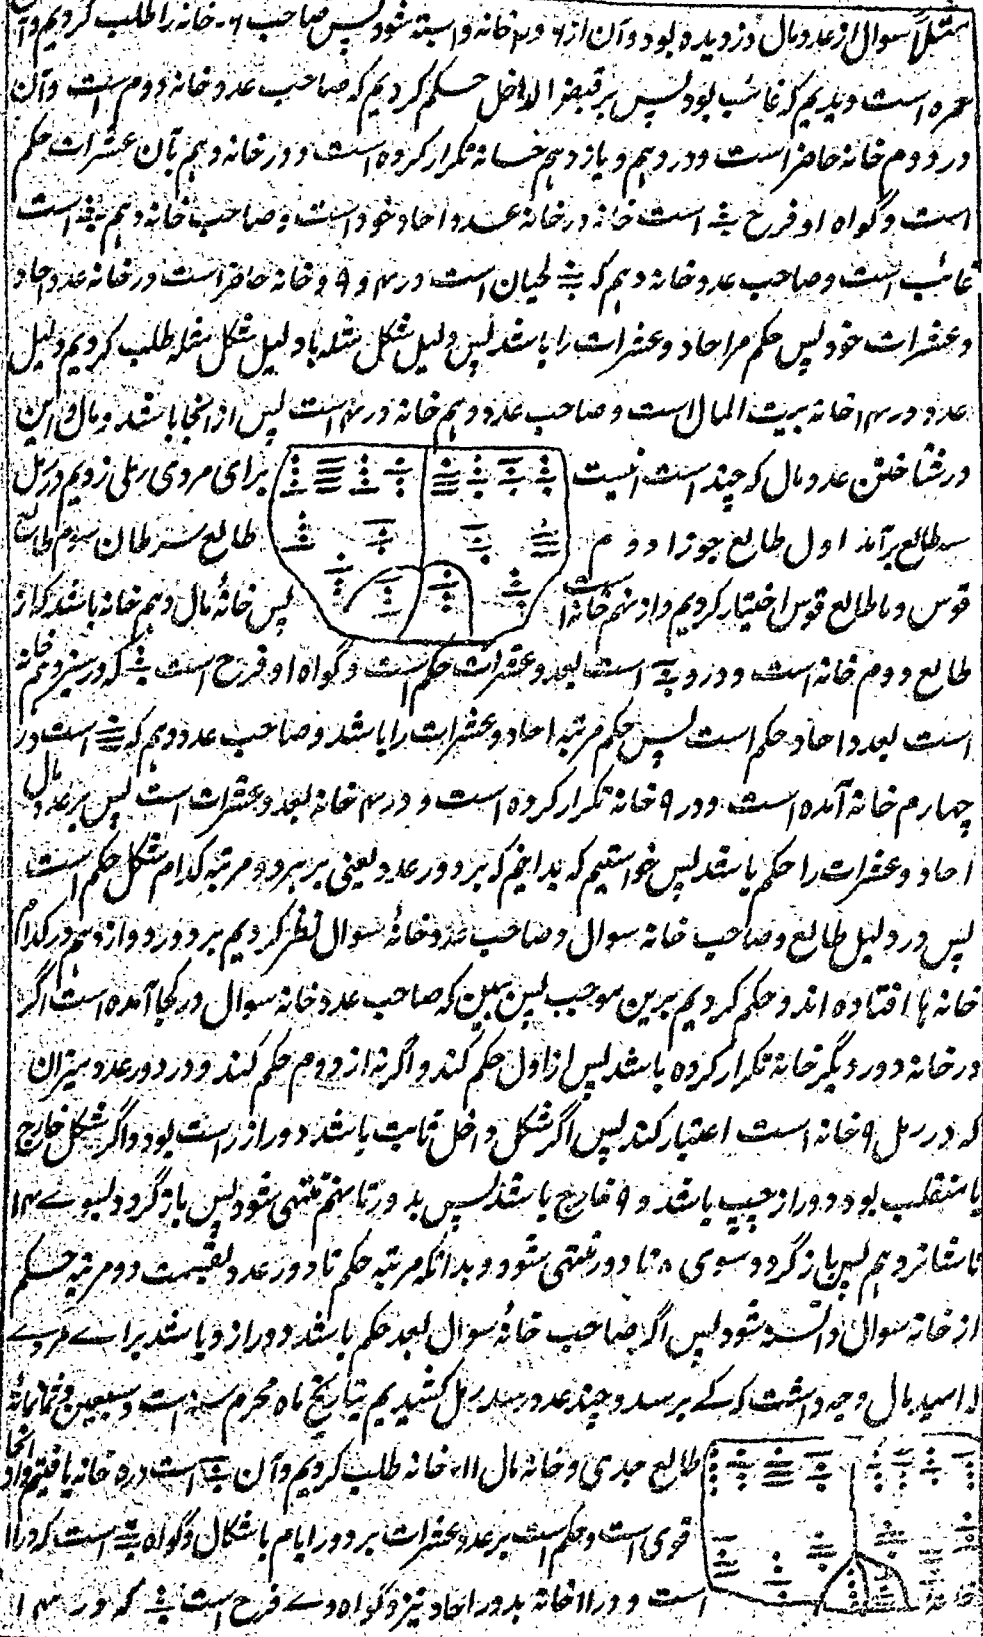 مثلاً سوال از عدد مال دزدیده بود و آن از ۲ و ۷ خانه دانسته شود پس صاحب ۷ خانه را طلب کردیم و آن
حمره است دیدیم که غائب بود پس بر قبض الداخل حکم کردیم که صاحب عدد خانه دوم است و آن
در دوم خانه حاضر است و در دهم و یازدهم خانه تکرار کرده است و در خانه دهم بآن عشرات حکم
است و گواه او فرح است خانه در خانه عدد احاد خود است و صاحب خانه دهم است
غائب است و صاحب عدد خانه دهم که لحیان است در ۴ و ۹ و خانه حاضر است در خانه عدد احاد
و عشرات خود پس حکم مر احاد و عشرات را باشد پس دلیل شکل مثله با دلیل شکل مثله طلب کردیم دلیل
عدد در ۱۴ خانه بیت المال است و صاحب عدد دهم خانه در ۴ است پس از انجا باشد و مال این
در شناختن عدد مال که چند است اینست برای مردی رملی زدیم در رمل
سه طالع برآمد اول طالع جوزا دوم طالع سرطان سوم طالع
قوس و ما طالع قوس اختیار کردیم و او نهم خانه است پس خانهٔ مال دهم خانه باشد که از
طالع دوم خانه است و درو است بعدد عشرات حکم است و گواه او فرح است که در سیزدهم خانه
است بعدد احاد حکم است پس حکم مرتبه احاد و عشرات را باشد و صاحب عدد دهم که است در
چهارم خانه آمده است و در ۹ خانه تکرار کرده است و در ۴ خانه بعدد عشرات است پس بر عدد مال
احاد و عشرات را حکم باشد پس خواستیم که بدانیم که بر دور عدد یعنی بر هر دو مرتبه کدام شکل حکم است
پس در دلیل طالع و صاحب خانه سوال و صاحب عدد خانهٔ سوال نظر کردیم بر دور دوازدهم در کدام
خانه ها افتاده اند و حکم کردیم برین موجب پس ببین که صاحب عدد خانه سوال در کجا آمده است اگر
در خانه دور دیگر خانه تکرار کرده باشد پس از اول حکم کند و اگر نه از دوم حکم کند و در دور عدد میزان
که در رمل ۹ خانه است اعتبار کند پس اگر شکل داخل ثابت باشد دور از راست بود و اگر شکل خارج
یا منقلب بود دور از چپ باشد و ۹ خارج باشد پس بدور تا نهم منتهی شود پس باز گردد بسوے ۱۴
تا شانزدهم پس باز گردد سوی ۸ تا دور منتهی شود و بدانکه مرتبه حکم تا دور عدد بقیمت دو مرتبه حکم
از خانه سوال دانسته شود پس اگر صاحب خانهٔ سوال بعد حکم باشد دور ازو باشد براے مردے
لا امید بمال وجه داشت که کے برسد و چند عدد رسد رمل کشیدیم بتاریخ ماه محرم سنه است و سبعین و ثمانمائة
طالع جدی و خانه مال ۱۱ خانه طلب کردیم و آن است در ۵ خانه یافتیم و او انجا
قوی است و حکم است بر عدد عشرات بر دور ایام باشکال و گواه است که در ۱۱
است و در ۱۱ خانه بدور احاد نیز و گواه وے فرح است که در ۱۴